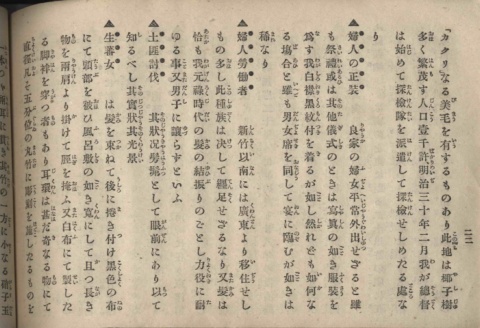 二二
「カクリ」なる美毛を有するものあり此地は椰子樹
多く繁茂す人口壹千許明治三十年二月我が總督
は始めて探檢隊を派遣して探檢せしめたる處な
り
▲婦人の正裝 良家の婦女平常外出せざると雖
も祭禮或は其他儀式のときは寫眞の如き服裝を
爲す我白襟黑紋付を着るが如し然れども如何な
る塲合と雖も男女席を同して宴に臨むが如きは
稀なり
▲婦人勞働者 新竹以南には廣東より移住せし
もの多し此種族は決して纒足せざるなり又髮は
恰も我元祿時代の髮の結振りのごとし力役に耐
ゆる事又男子に讓らずといふ
▲土匪討伐 其狀況劈髴として眼前にあり以て
知るべし其實狀其光景
▲生蕃女 は髮を束ねて後に捲き付け黑色の布
にて頭部を被ひ風呂敷の如き寬にして且つ長き
物を兩肩より掛けて脛を掩ふ又白布にて製した
る脚袢を穿つ者もあり耳環は甚だ奇なる物にて
直徑凡そ五分位の丸竹に彫刻を施したるものを